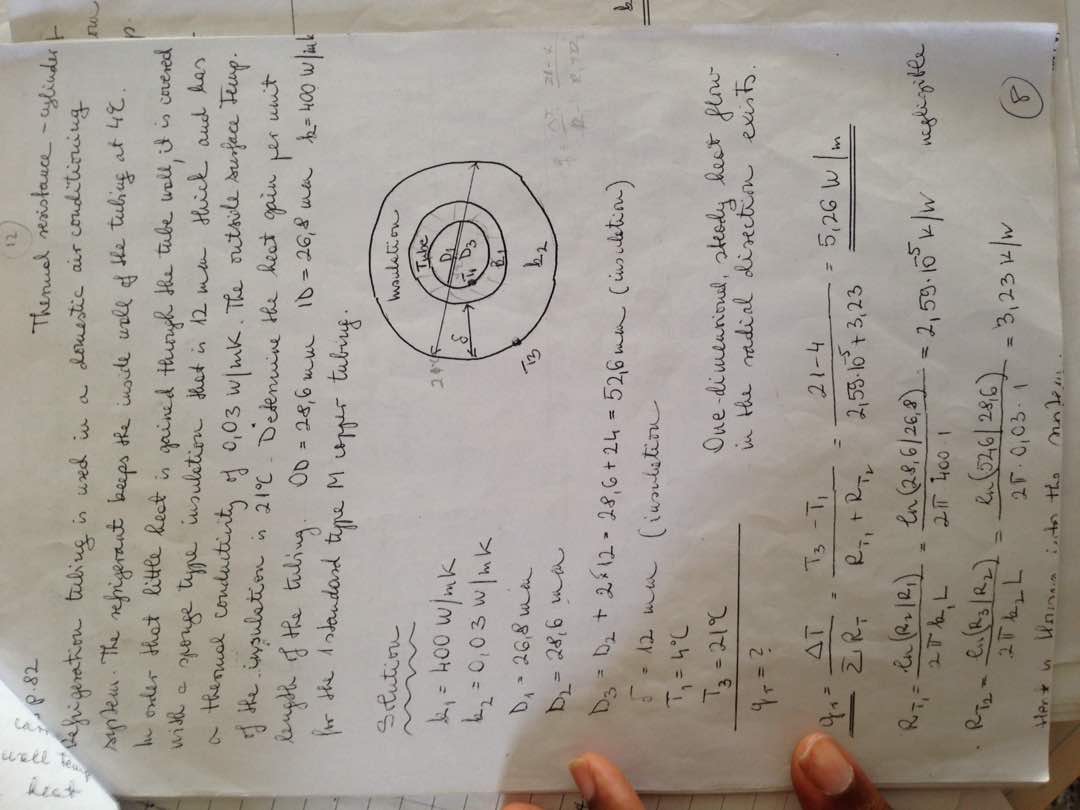 12
Thermal resistance - cylinder
p. 82
Refrigeration tubing is used in a domestic air conditioning
system. The refrigerant keeps the inside wall of the tubing at 4℃.
In order that little heat is gained through the tube wall, it is covered
with a sponge type insulation that is 12 mm thick and has
a thermal conductivity of 0,03 W/mK. The outside surface temp.
of the insulation is 21℃. Determine the heat gain per unit
length of the tubing. OD = 28,6 mm ID = 26,8 mm k = 400 W/mK
for the 1 standard type M copper tubing.
Solution
k₁ = 400 W/mK
k₂ = 0,03 W/mK
D₁ = 26,8 mm
D₂ = 28,6 mm
D₃ = D₂ + 2·12 = 28,6 + 24 = 52,6 mm (insulation)
δ = 12 mm (insulation
T₁ = 4℃
T₃ = 21℃
qr = ?
Insulation
Tube
D₁
D₃
T₁
k₁
k₂
δ
T3
One-dimensional, steady heat flow
in the radial direction exists.
qr = ΔT / Σ RT = T₃ - T₁ / RT₁ + RT₂ = 21 - 4 / 2,59·10⁻⁵ + 3,23 = 5,26 W/m
RT₁ = ln(R₂/R₁) / 2π k₁ L = ln(28,6/26,8) / 2π 400 · 1 = 2,59·10⁻⁵ K/W negligible
RT₂ = ln(R₃/R₂) / 2π k₂ L = ln(52,6/28,6) / 2π · 0,03 · 1 = 3,23 K/W
8
wall temp
heat